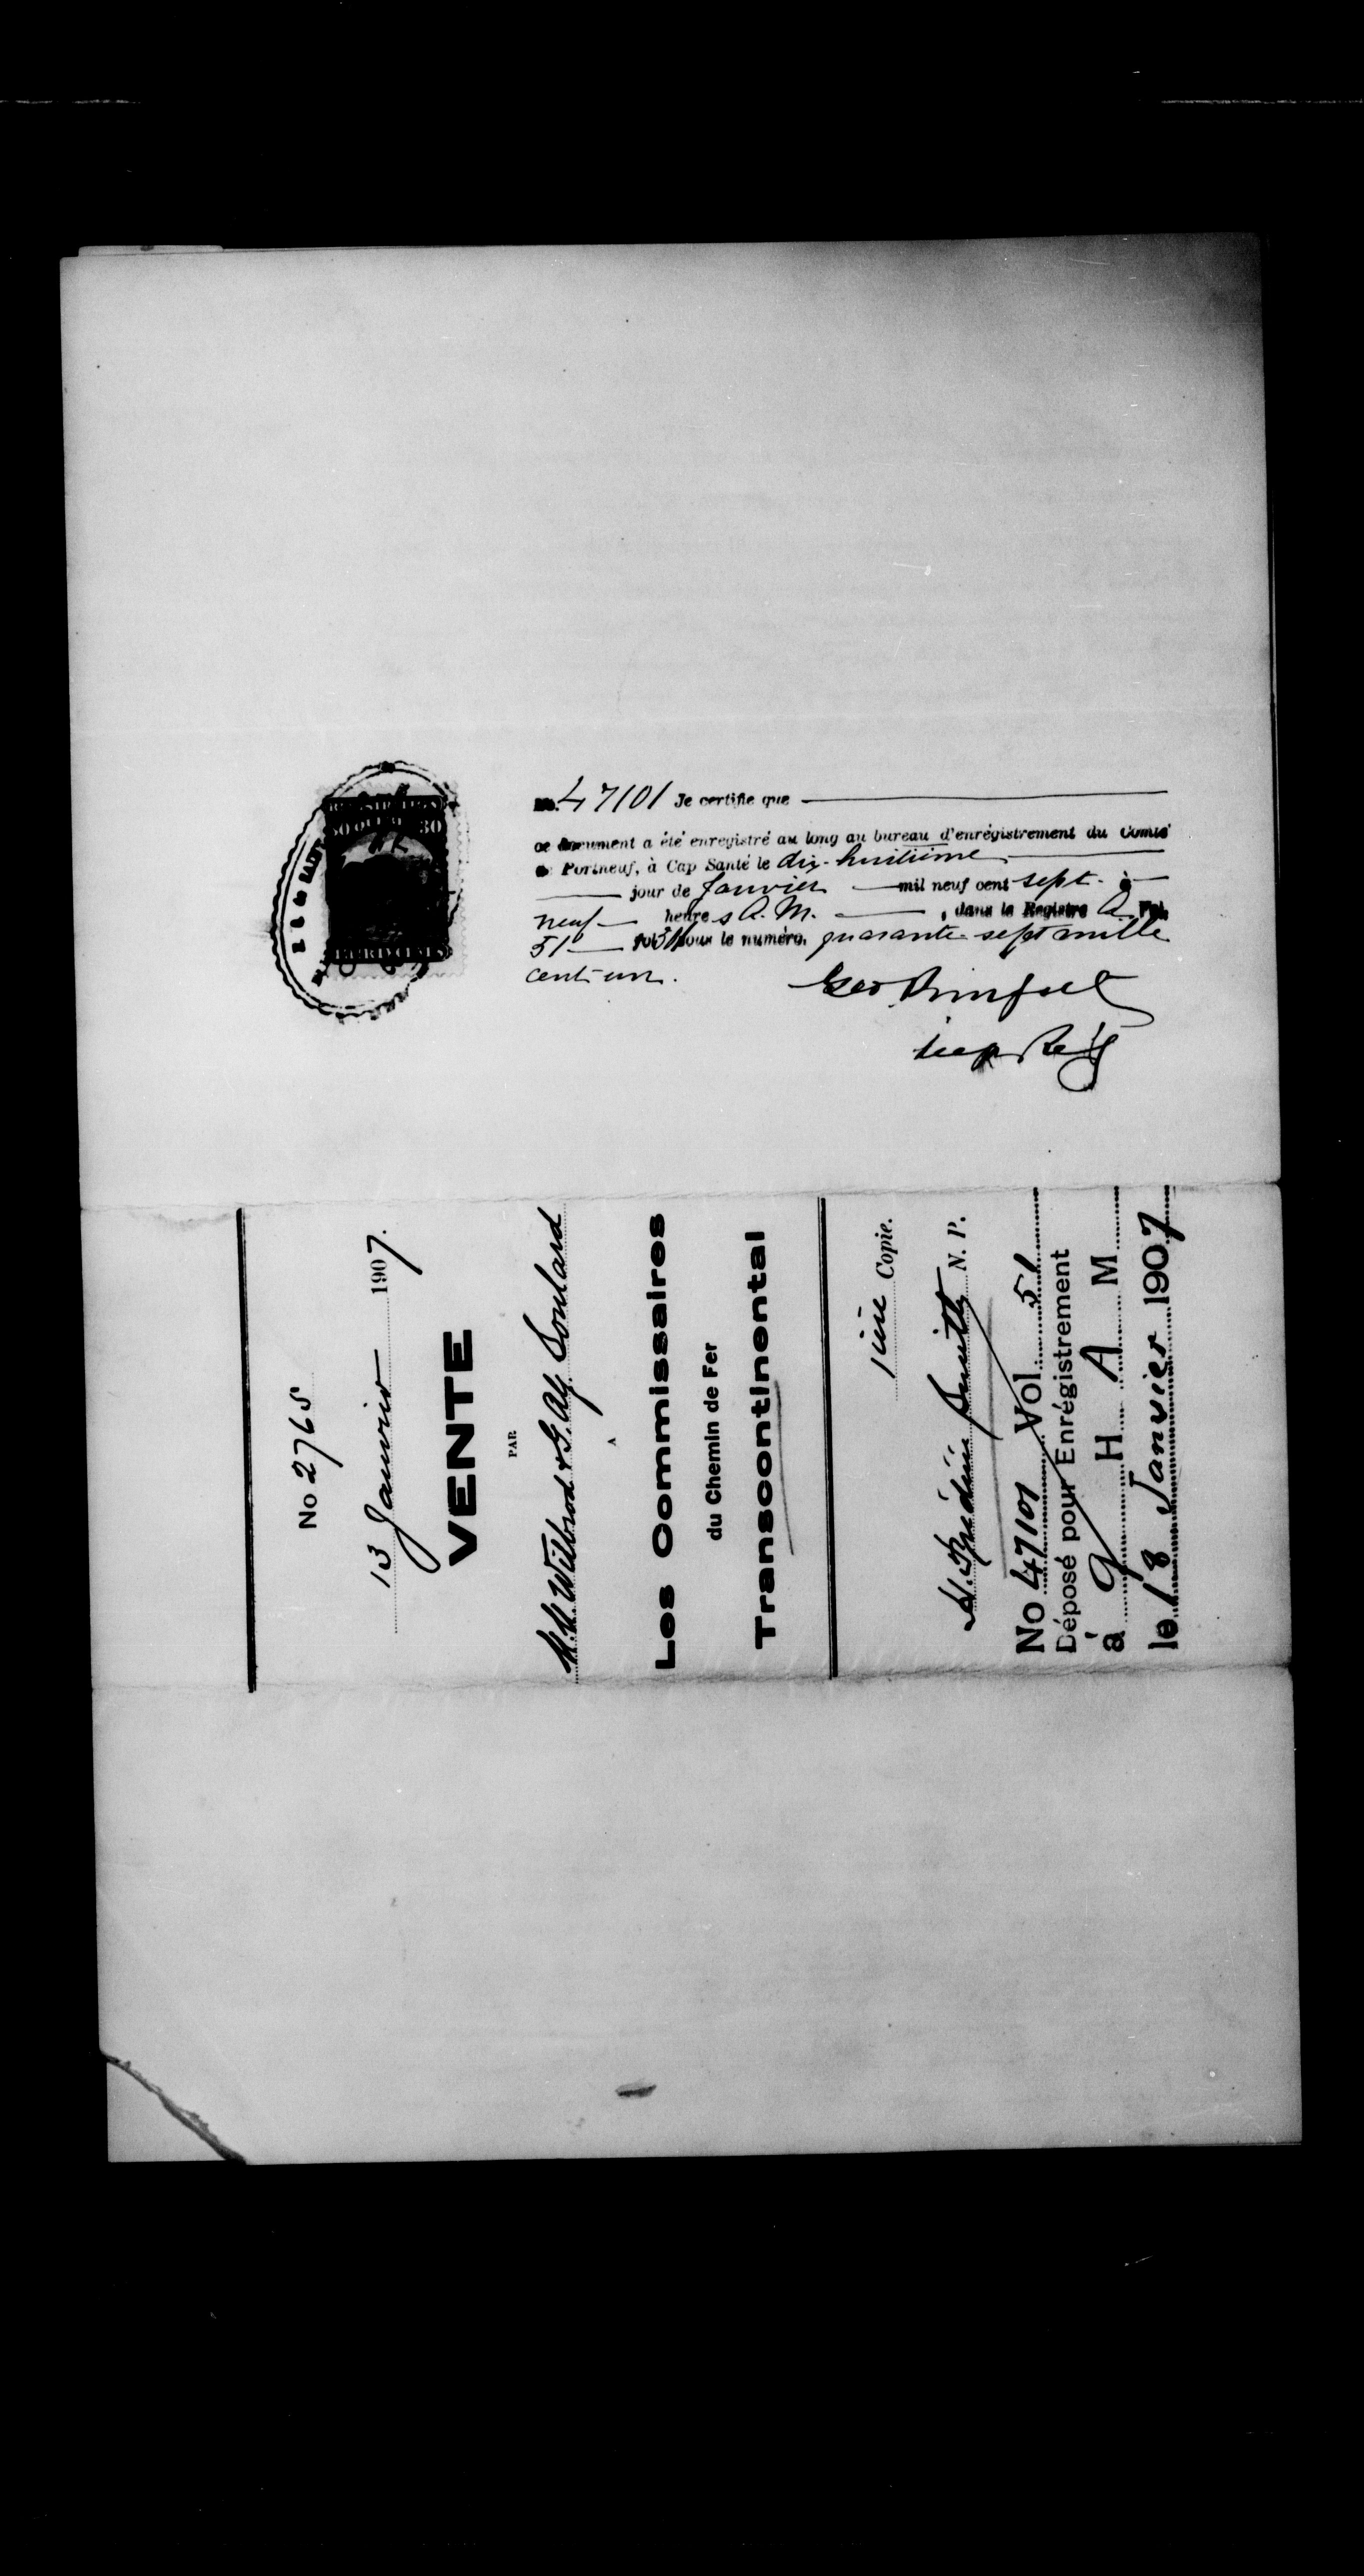 REGISTRATION
30 QUEBEC 30
THIRTY CENTS
No. 47101 Je certifie que
ce document a été enregistré au long au bureau d'enrégistrement du Comté
de Portneuf, à Cap Santé le dix-huitième
jour de Janvier mil neuf cent sept à
neuf heures A. M. , dans le Registre A. Vol.
51 sous le numéro. quarante-sept mille
cent-un.
Dep Reg
No 2765
13 Janvier 1907.
VENTE
PAR
M.M. Wilbrod & G. Alf Soulard
A
Les Commissaires
du Chemin de Fer
Transcontinental
1ière Copie.
N. P.
No 47101 Vol 51
Déposé pour Enrégistrement
à 9 H A M
le 18 Janvier 1907